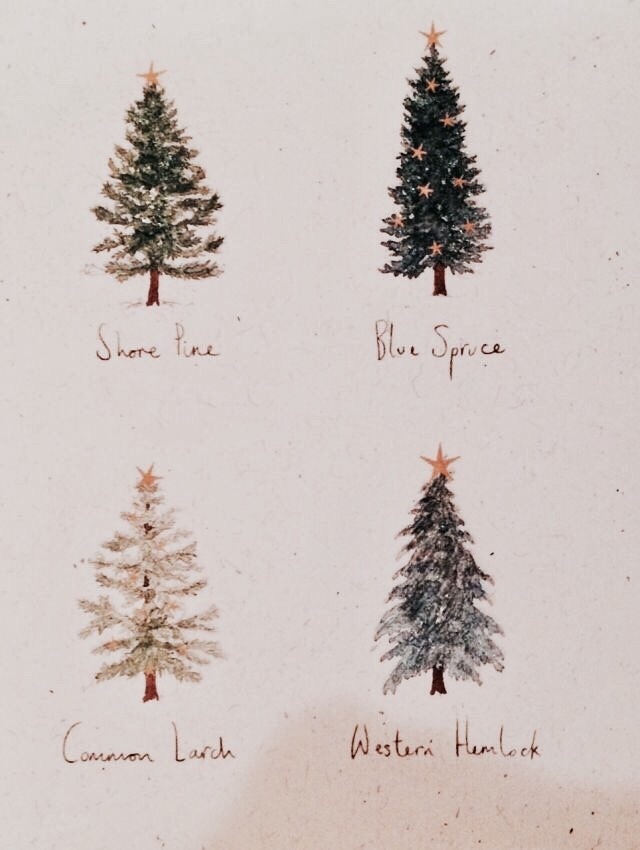 Shore Pine
Blue Spruce
Common Larch
Western Hemlock